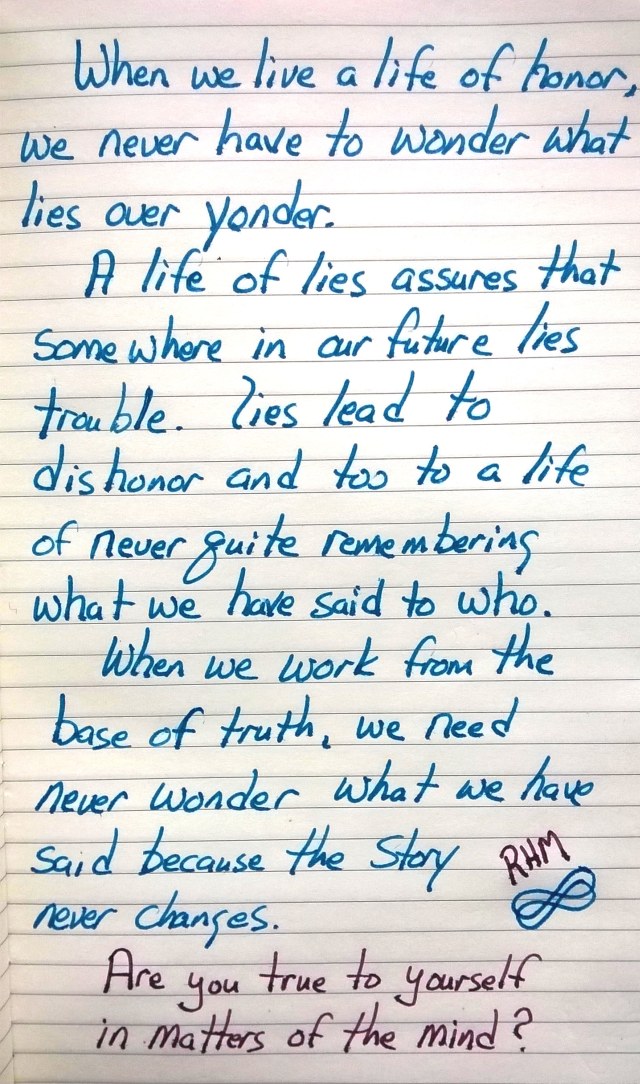 When we live a life of honor,
we never have to wonder what
lies over yonder.
A life of lies assures that
somewhere in our future lies
trouble. Lies lead to
dishonor and too to a life
of never quite remembering
what we have said to who.
When we work from the
base of truth, we need
never wonder what we have
said because the story
never changes.
RHM
Are you true to yourself
in matters of the mind?